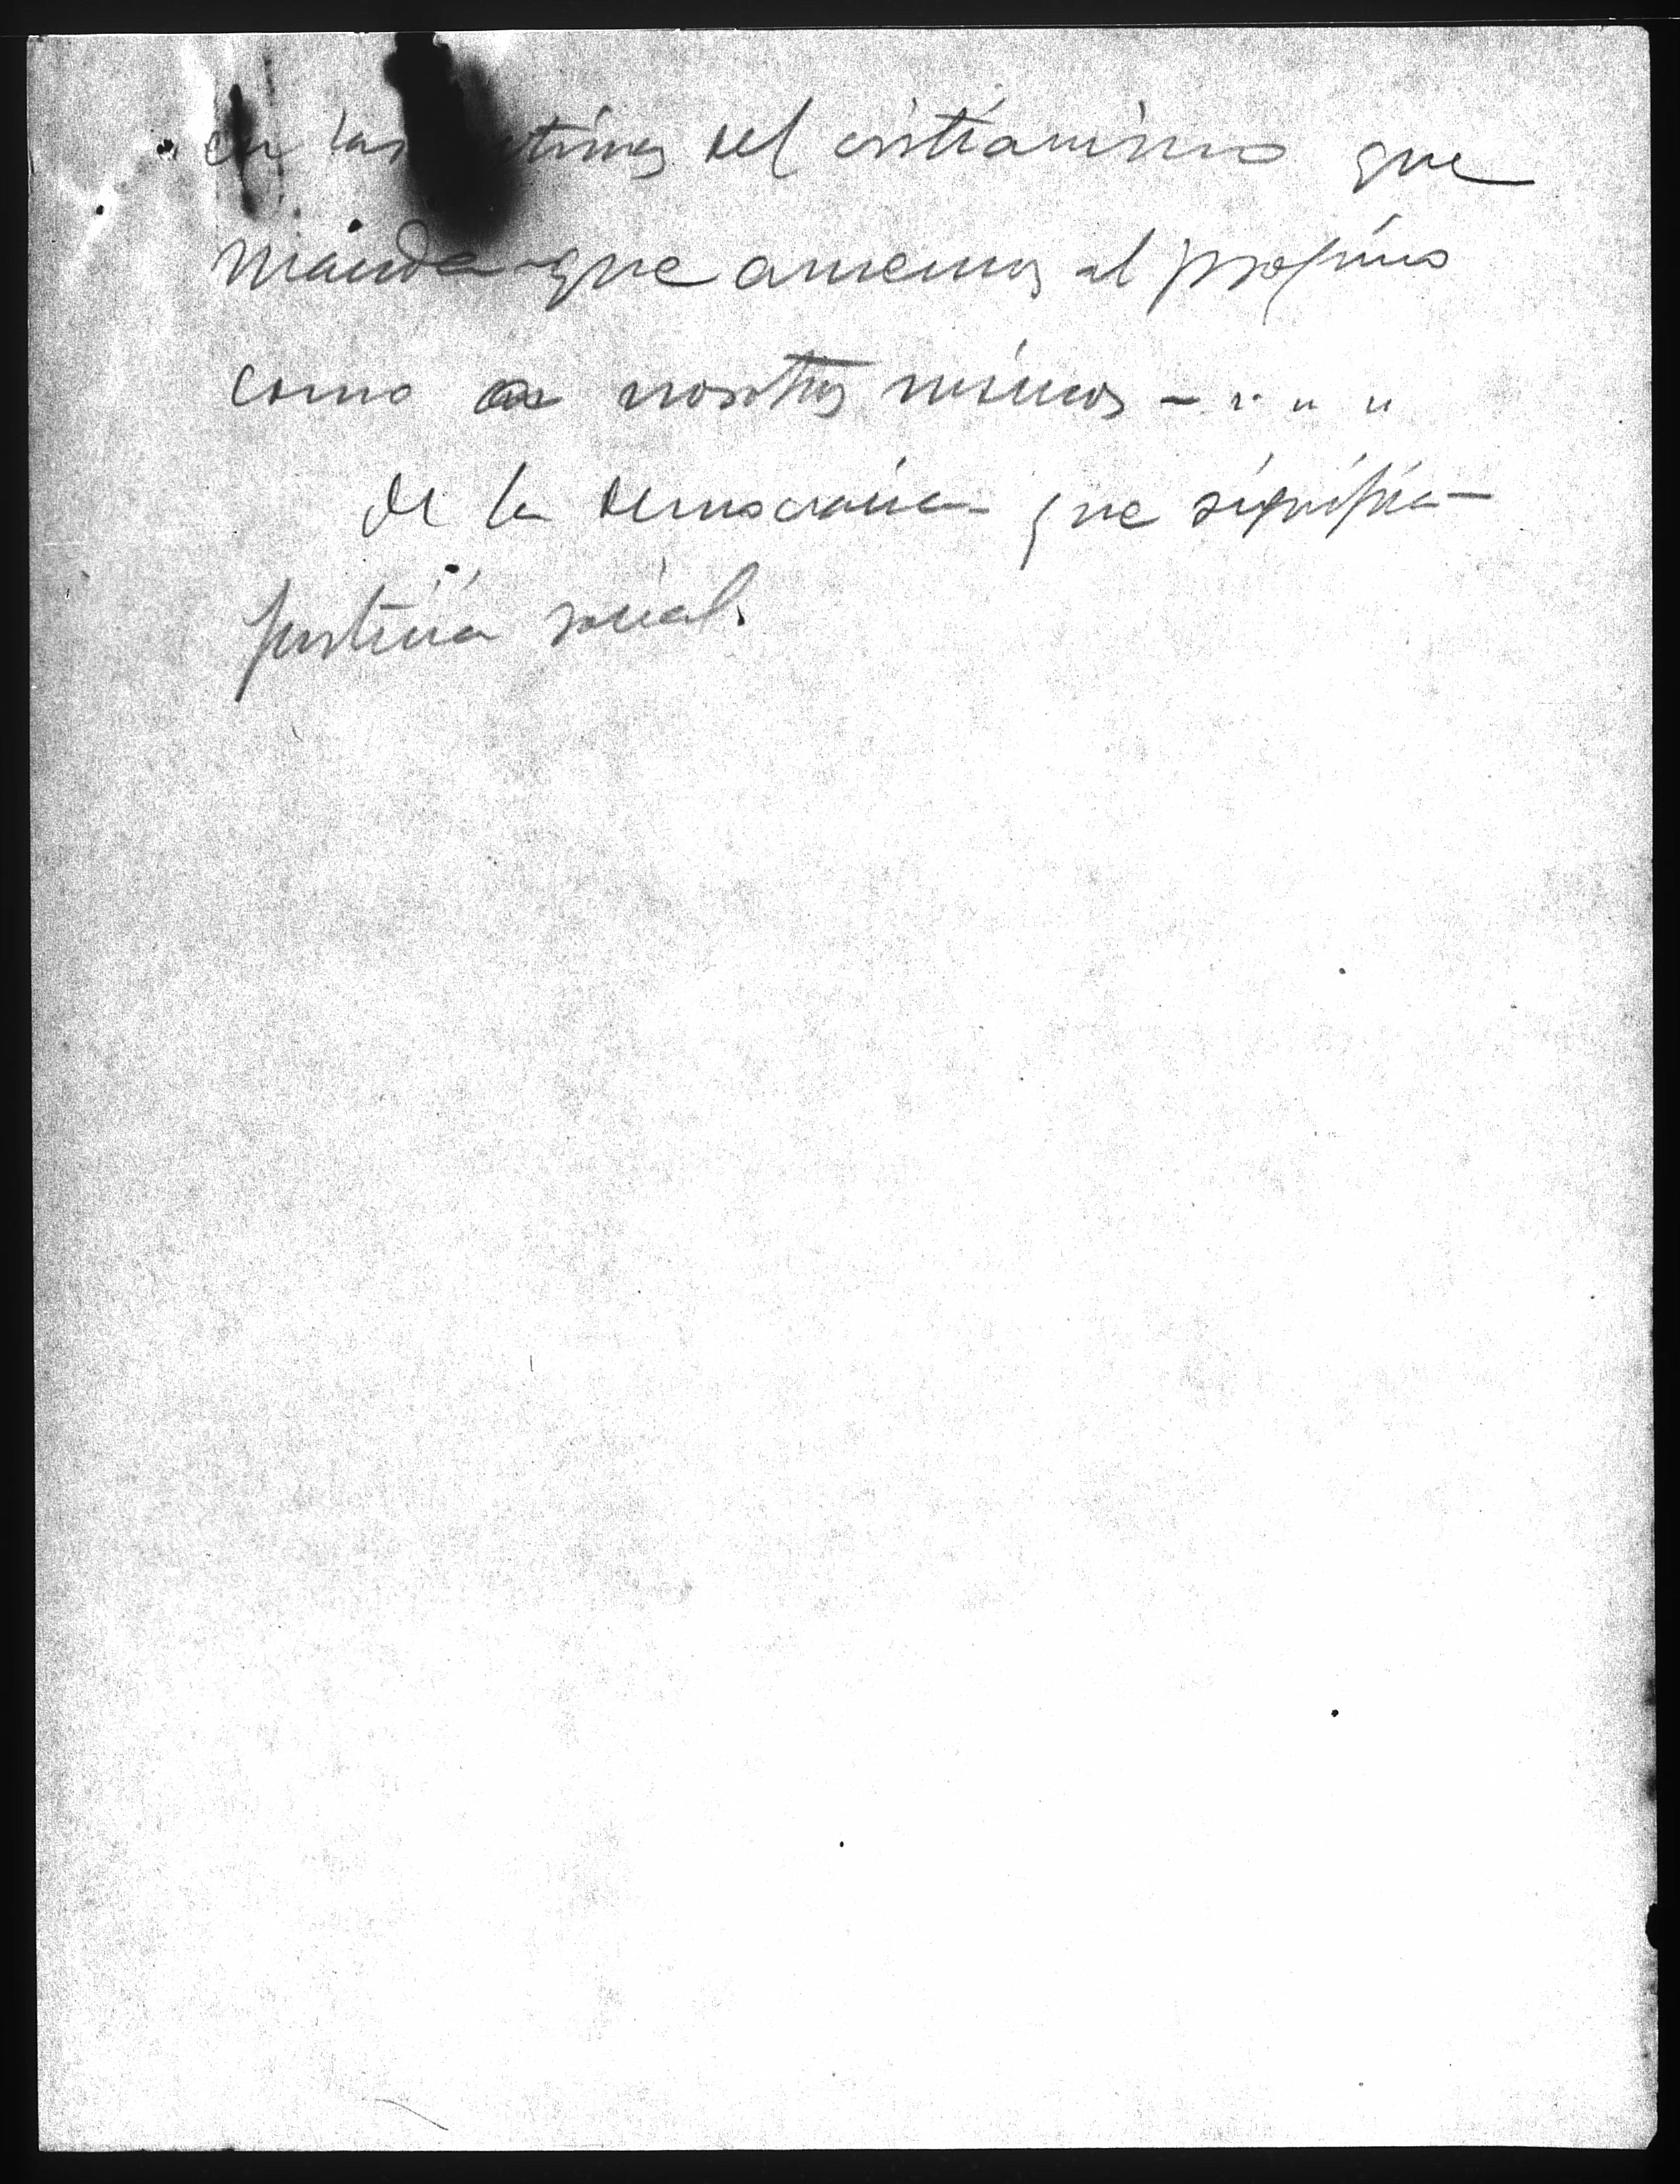 en las del cristianismo que
manda que amemos al projimo
como a nosotros mismos - . . .
de la democracia que significa
justicia social.